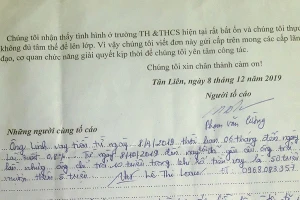 Chúng tôi nhận thấy tình hình ở trường TH &THCS hiện tại rất bất ổn và chúng tôi
không đủ tâm thế để lên lớp. Vì vậy chúng tôi viết đơn này gửi cấp trên mong các cấp lãnh
đạo, cơ quan chức năng giải quyết kịp thời để chúng tôi yên tâm công tác.
Chúng tôi xin chân thành cảm ơn!
Tân Liên, ngày 8 tháng 12 năm 2019
Người tố cáo
Phạm văn Cường
Những người cùng tố cáo
Ông Linh vay tiền từ ngày 8/4/2019 thời hạn 06 tháng
lãi suất Từ ngày 8/10/2019 đến nay
nhưng ông đã trả 10 triệu trong khi số tiền vay là 50 triệu
Lê Thị Loan
0968.083.957